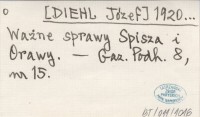 [DIEHL Józef] 1920...
Ważne sprawy Spisza i
Orawy. — Gaz. Podh. 8,
nr 15.